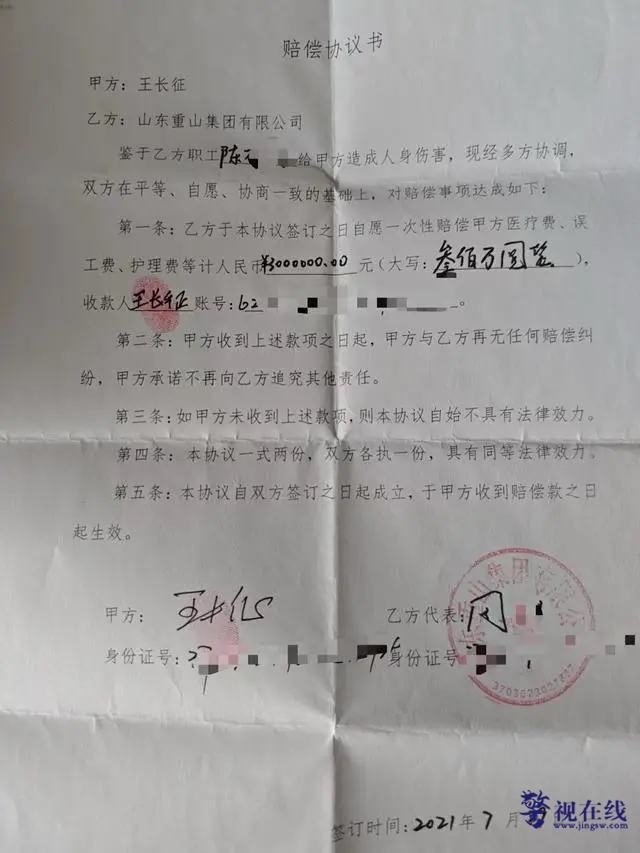 赔偿协议书
甲方：王长征
乙方：山东重山集团有限公司
鉴于乙方职工陈 给甲方造成人身伤害，现经多方协调，
双方在平等、自愿、协商一致的基础上，对赔偿事项达成如下：
第一条：乙方于本协议签订之日自愿一次性赔偿甲方医疗费、误
工费、护理费等计人民币¥3000000.00元（大写：叁佰万圆整），
收款人王长征账号：62 。
第二条：甲方收到上述款项之日起，甲方与乙方再无任何赔偿纠
纷，甲方承诺不再向乙方追究其他责任。
第三条：如甲方未收到上述款项，则本协议自始不具有法律效力。
第四条：本协议一式两份，双方各执一份，具有同等法律效力。
第五条：本协议自双方签订之日起成立，于甲方收到赔偿款之日
起生效。
甲方：王长征 乙方代表：
身份证号： 身份证号：
山集团有限公
签订时间：2021年7月
警视在线
www.jingsw.com